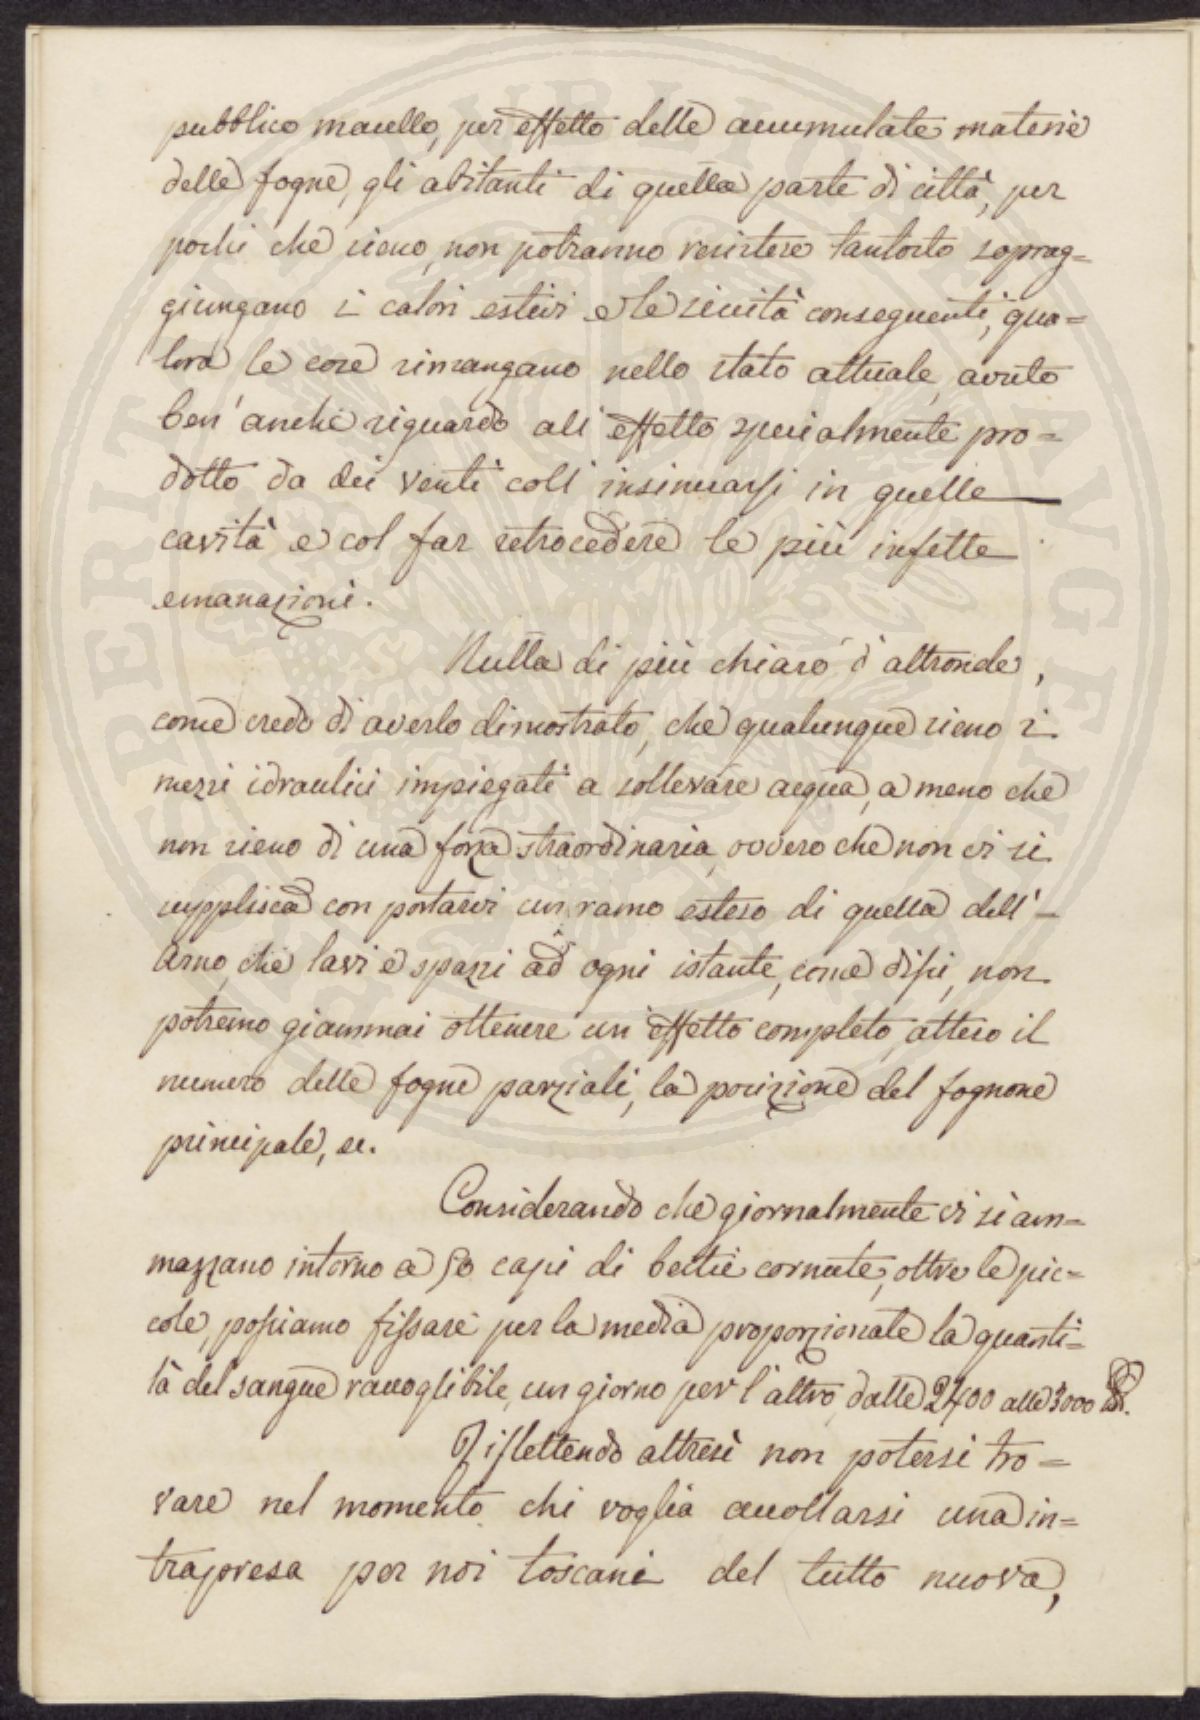 pubblico macello, per effetto delle accumulate materie
delle fogne, gli abitanti di quella parte di città, per
pochi che sieno, non potranno resistere tantosto soprag=
giungano i calori estivi e le siccità conseguenti, qua=
lora le cose rimangano nello stato attuale, avuto
ben' anche riguardo all' effetto specialmente pro=
dotto da dei venti coll' insinuarsi in quelle
cavità e col far retrocedere le più infette
emanazioni.
Nulla di più chiaro d'altronde,
come credo di averlo dimostrato, che qualunque sieno i
mezzi idraulici impiegati a sollevare acqua, a meno che
non sieno di una forza straordinaria, ovvero che non vi si
supplisca con portarvi un ramo esteso di quella dell'
Arno, che lavi e spazzi ad ogni istante, come dissi, non
potremo giammai ottenere un' effetto completo, atteso il
numero delle fogne parziali, la posizione del fognone
principale, ec.
Considerando che giornalmente vi si am=
mazzano intorno a 50 capi di bestie cornute, oltre le pic=
cole, possiamo fissare per la media proporzionale la quanti=
tà del sangue raccoglibile, un giorno per l'altro, dalle 2400 alle 3000 ℔.
Riflettendo altresì non potersi tro=
vare nel momento chi voglia accollarsi una in=
trapresa per noi toscani del tutto nuova,
PROSPERITATI PUBLICAE AUGENDAE